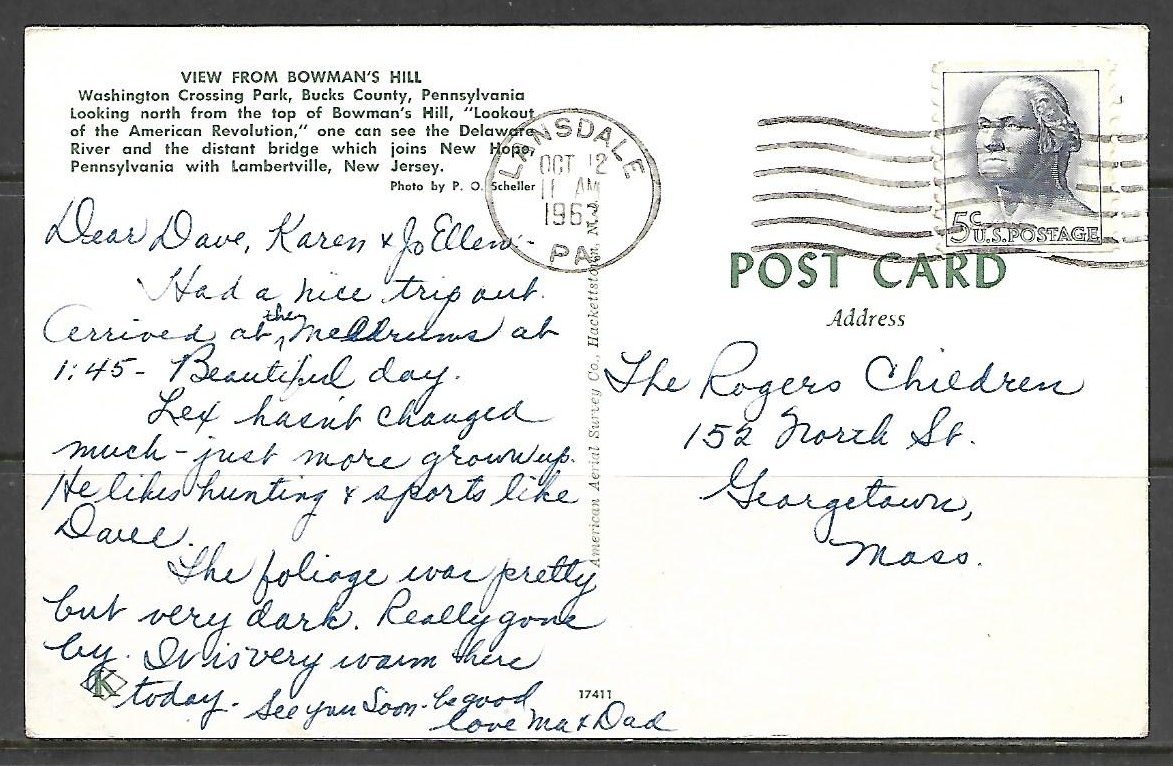 VIEW FROM BOWMAN'S HILL
Washington Crossing Park, Bucks County, Pennsylvania
Looking north from the top of Bowman's Hill, "Lookout
of the American Revolution," one can see the Delaware
River and the distant bridge which joins New Hope,
Pennsylvania with Lambertville, New Jersey.
Photo by P. O. Scheller
Dear Dave, Karen & JoEllen -
Had a nice trip out.
Arrived at the Meldrums at
1:45 - Beautiful day.
Lex hasn't changed
much - just more grown up.
He likes hunting & sports like
Dave.
The foliage was pretty
but very dark. Really gone
by. It is very warm here
today. See you Soon - be good
love Ma & Dad
K
17411
American Aerial Survey Co., Hackettstown, N.
LANSDALE
OCT 12
11 AM
1963
PA
5c U.S. POSTAGE
POST CARD
Address
The Rogers Children
152 North St.
Georgetown,
Mass.